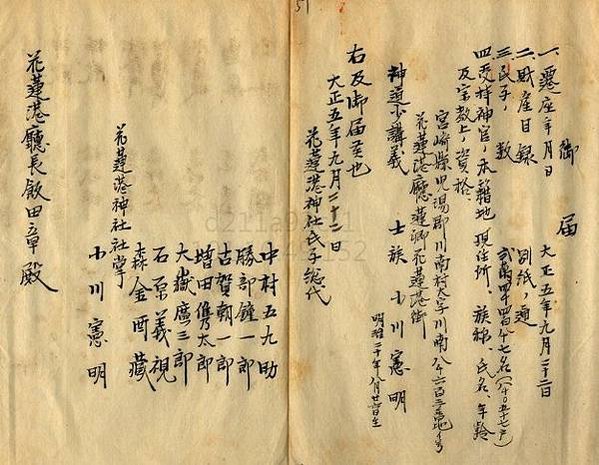 御届
一、遷座年月日 大正五年九月二十二日
二、財産目録 別紙ノ通
三、氏子ノ数
四、受持神官ノ本籍地、現住所、族称、氏名、年齢
及宗教上ノ資格、
宮崎縣児湯郡川南村大字川南
花蓮港廳蓮郷花蓮港街
神道少講義 士族 小川憲明
明治二十年八月廿日生
右及御届候也
大正五年九月二十二日
花蓮港神社氏子総代
中村五九助
勝部鐘一郎
古賀朝一郎
増田隽太郎
大嶽廣三郎
石原義視
森金酉藏
花蓮港神社社掌
小川憲明
花蓮港廳長飯田章殿